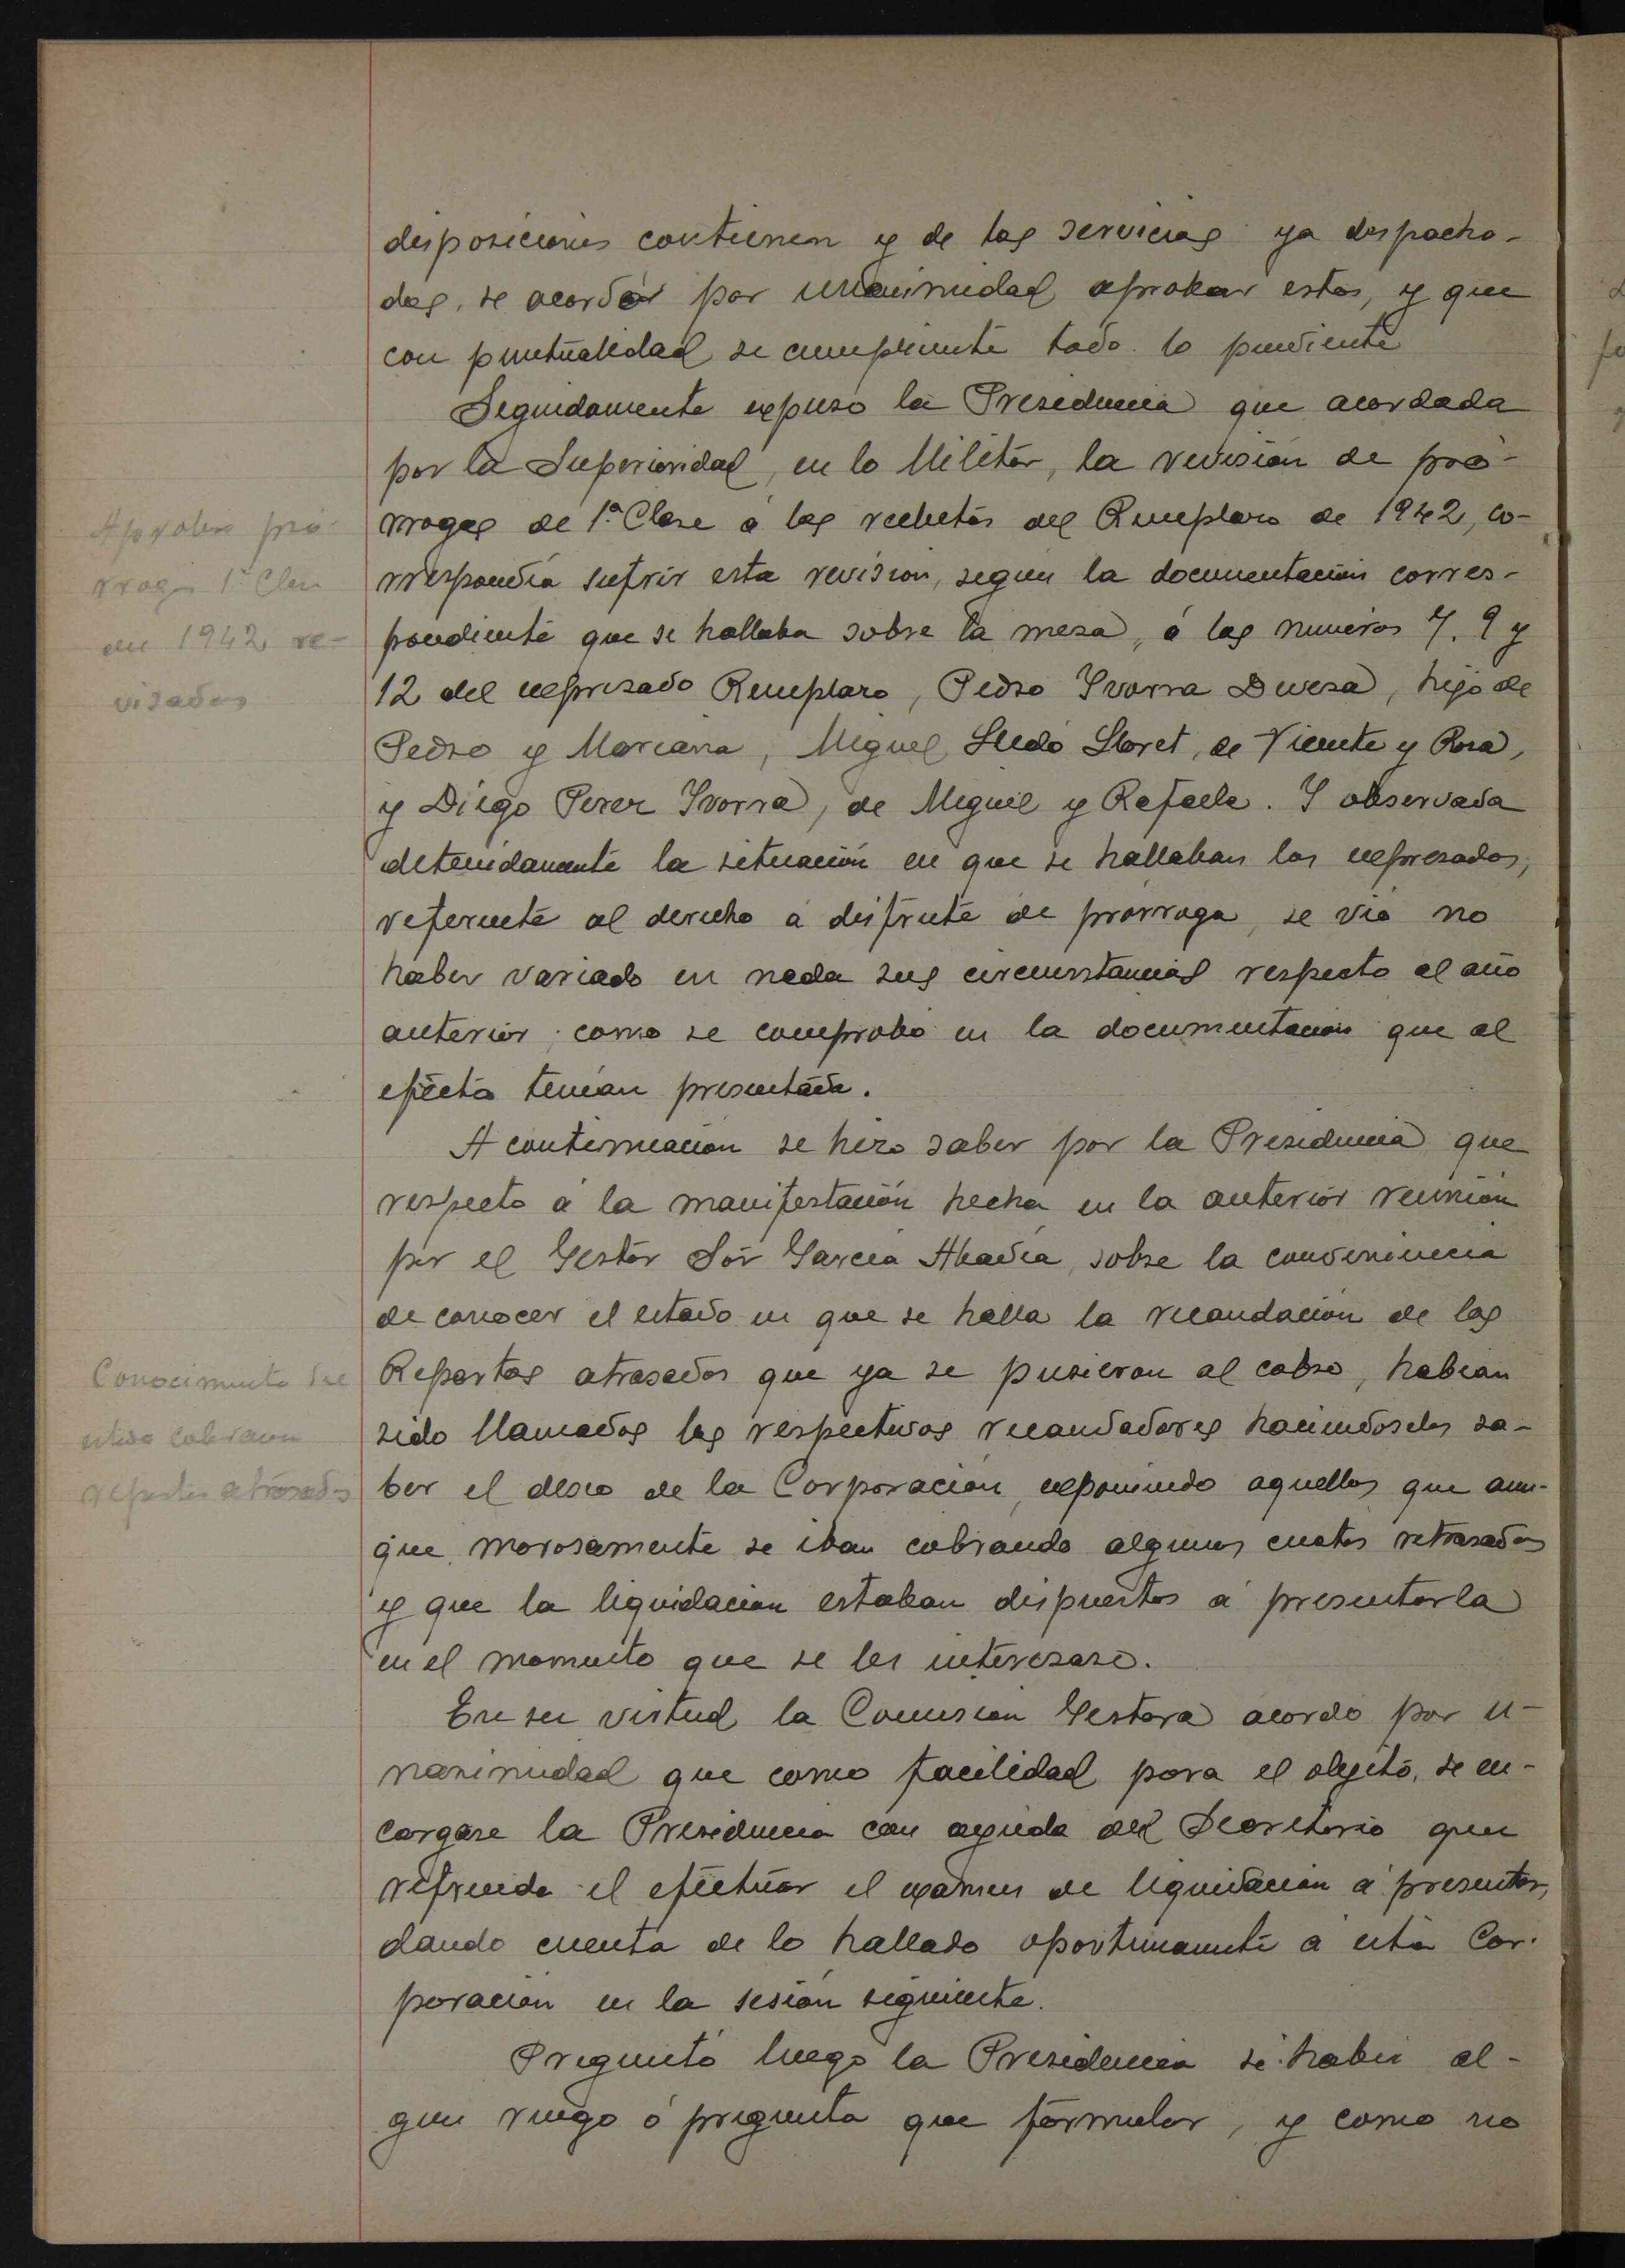 disposiciones contienen y de los servicios ya despacha-
dos, se acordó por unanimidad aprobar estos, y que
con puntualidad se cumplimente todo lo pendiente
Seguidamente expuso la Presidencia que acordada
por la Superioridad, en lo Militar, la revisión de pró-
rrogas de 1.ª Clase á los reclutas del Remplazo de 1942, co-
rrespondía sufrir esta revisión, según la documentación corres-
pondiente que se hallaba sobre la mesa, á los numeros 7, 9 y
12 del expresado Remplazo, Pedro Ivorra Devesa, hijo de
Pedro y Mariana, Miguel Lledó Lloret, de Vicente y Rosa,
y Diego Perez Ivorra, de Miguel y Rafaela. Y observada
detenidamente la situación en que se hallaban los expresados,
referente al derecho á disfrute de prórroga, se vió no
haber variado en nada sus circunstancias respecto al año
anterior, como se comprobó en la documentación que al
efecto tenían presentada.
A continuación se hizo saber por la Presidencia que
respecto á la manifestación hecha en la anterior reunión
por el Gestor Sör García Abadía, sobre la conveniencia
de conocer el estado en que se halla la recaudación de los
Repartos atrasados que ya se pusieron al cobro, habían
sido llamados los respectivos recaudadores haciendoseles sa-
ber el deseo de la Corporación, exponiendo aquellos que aun-
que morosamente se iban cobrando algunas cuotas retrasadas
y que la liquidación estaban dispuestos á presentarla
en el momento que se les interesase.
En su virtud la Comisión Gestora acordó por u-
nanimidad que como facilidad para el objeto, se en-
cargase la Presidencia con ayuda del Secretario que
refrenda el efectuar el examen de liquidación á presentar,
dando cuenta de lo hallado oportunamente á esta Cor-
poración en la sesión siguiente.
Preguntó luego la Presidencia si había al-
gun ruego ó pregunta que formular, y como no
Aprobar pró-
rrogas 1.ª Clase
del 1942 re-
visadas
Conocimiento del
estado cobranza
repartos atrasados